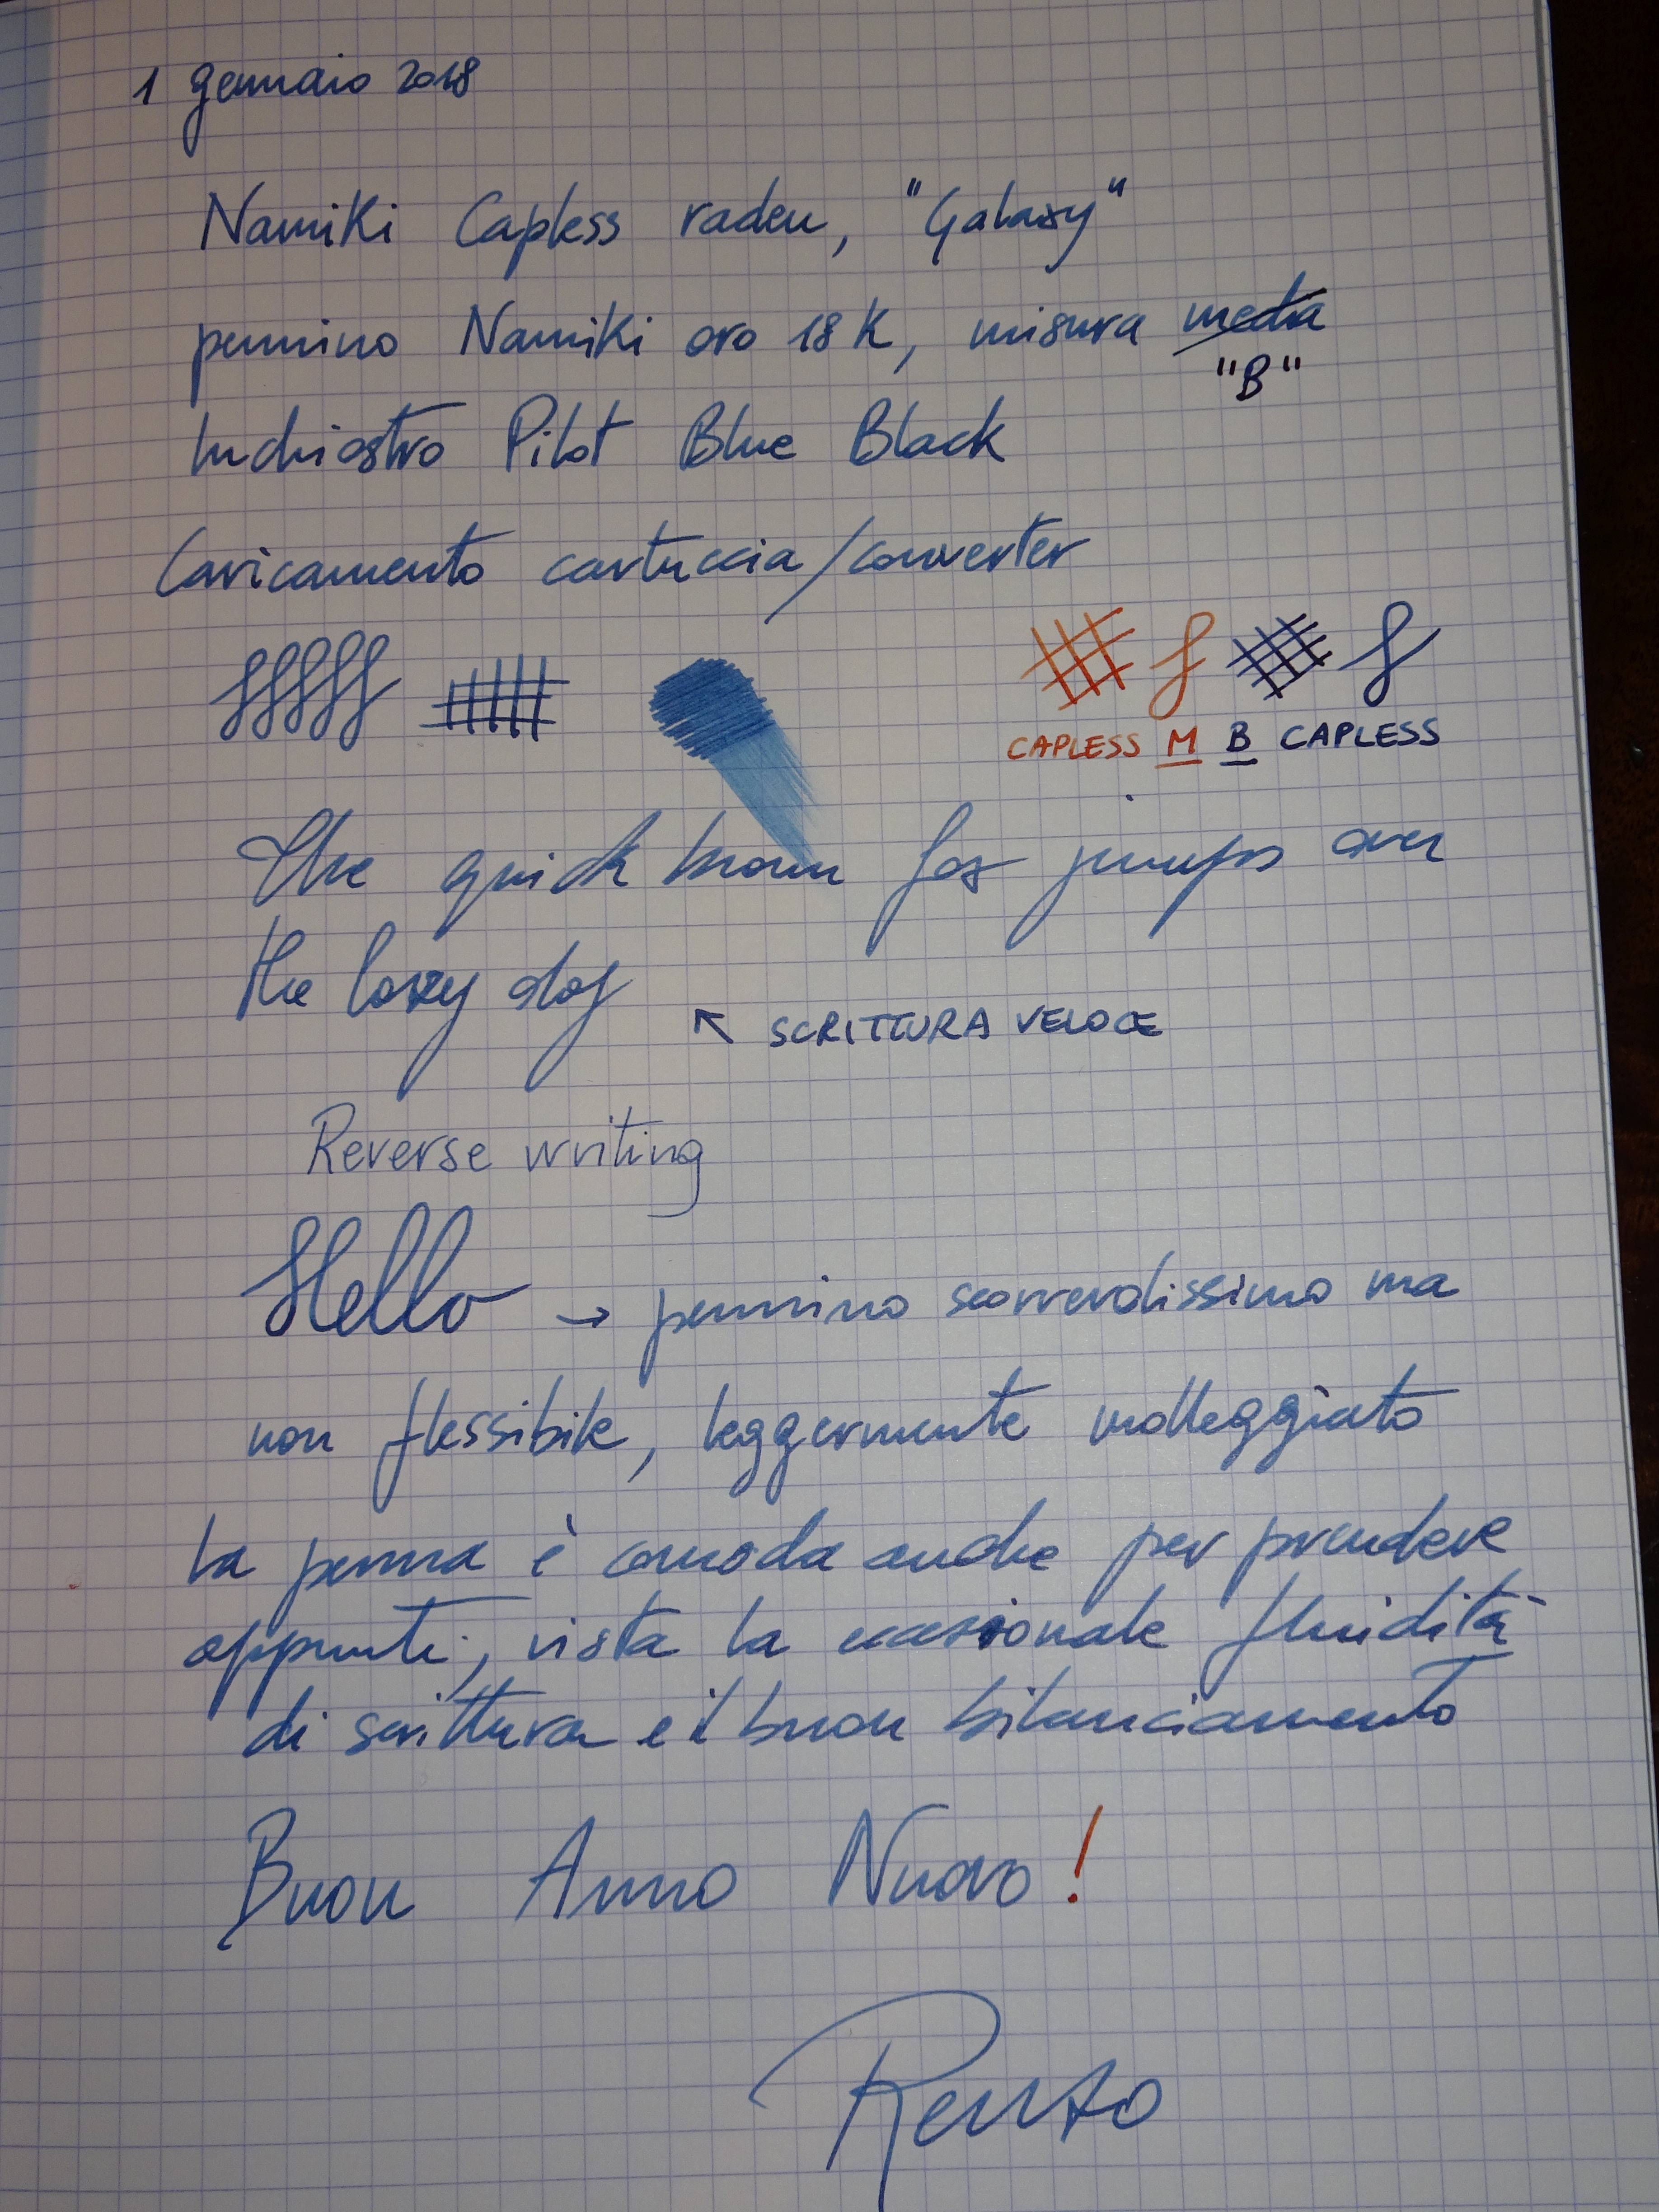 1 gennaio 2018
Namiki Capless raden, "Galaxy"
pennino Namiki oro 18K, misura media
"B"
Inchiostro Pilot Blue Black
Caricamento cartuccia/converter
CAPLESS M B CAPLESS
The quick brown fox jumps over
the lazy dog
↖ SCRITTURA VELOCE
Reverse writing
Hello → pennino scorrevolissimo ma
non flessibile, leggermente molleggiato
la penna è comoda anche per prendere
appunti, vista la eccasionale fluidità
di scrittura e il buon bilanciamento
Buon Anno Nuovo!
Renzo